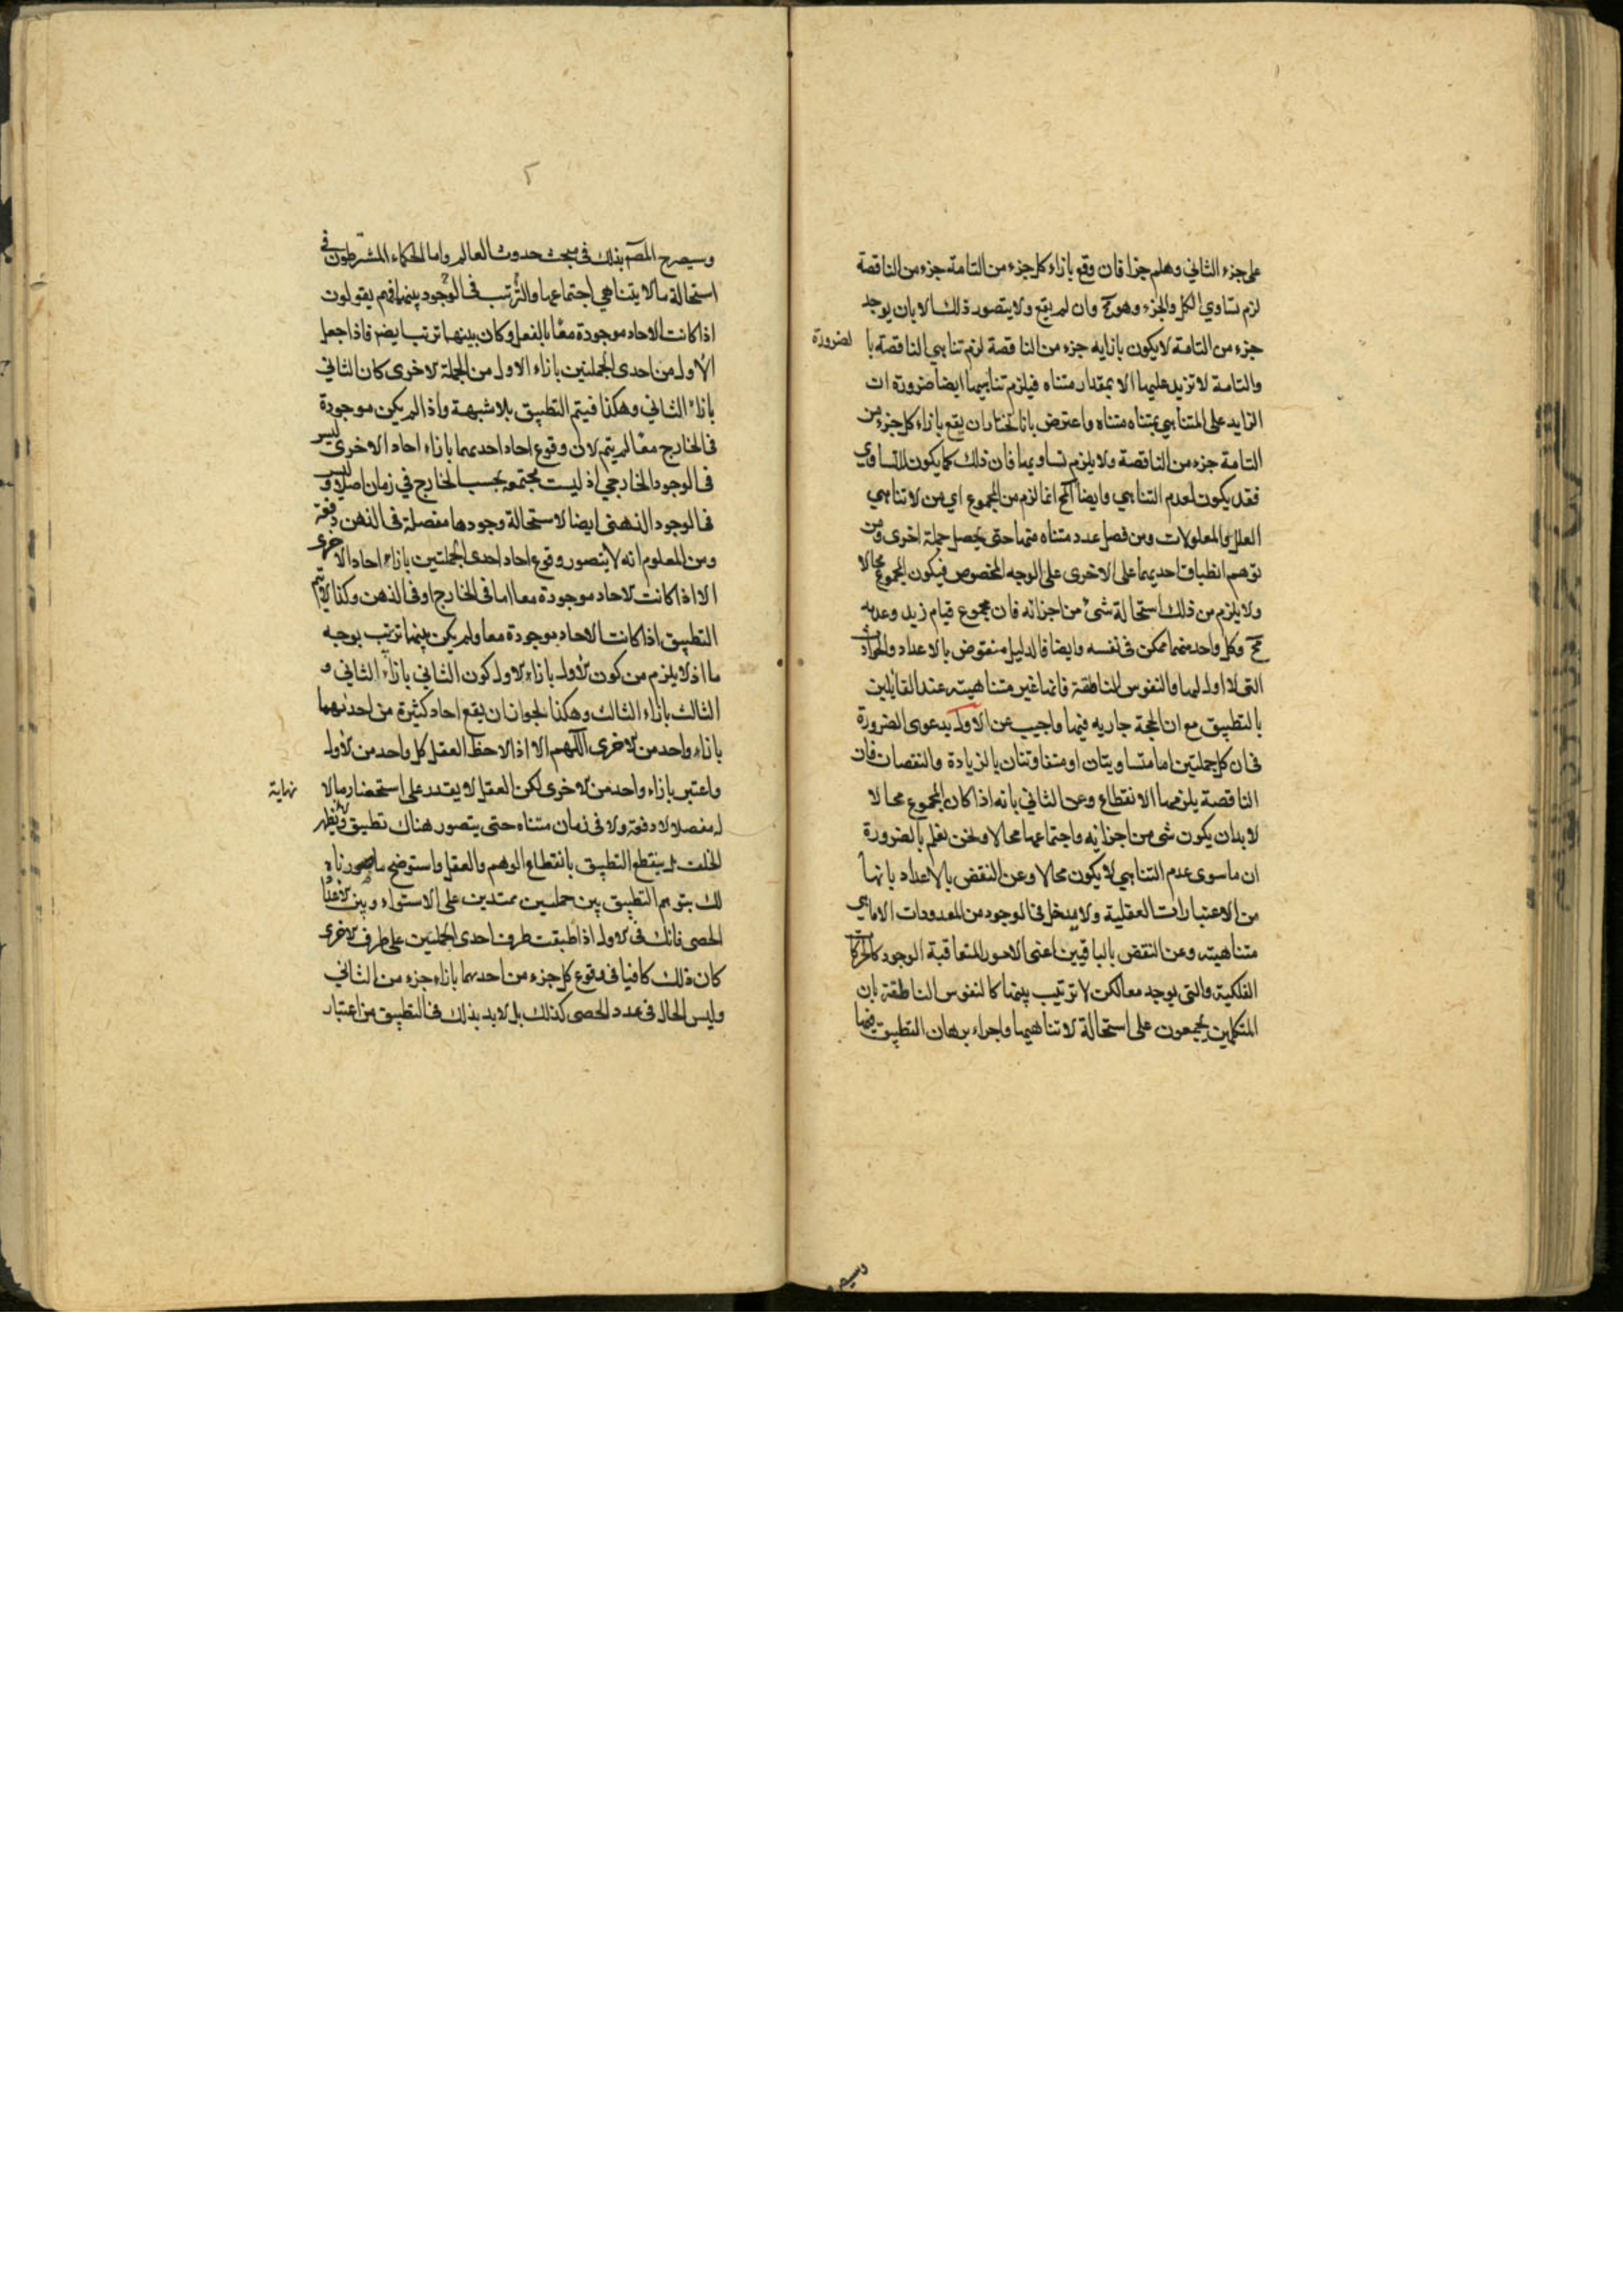 على جزء الثاني وهلم جرا فان وقع بازاء كل جزء من التامة جزء من الناقصة
لزم تساوي الكل والجزء وهو مح وان لم يقع ولا يتصور ذلك الا بان يوجد
جزء من التامة لا يكون بازايه جزء من الناقصة لزم تناهي الناقصة با لضرورة
والتامة لا تزيد عليها الا بمقدار متناه فيلزم تناهيها ايضا ضرورة ان
الزايد على المتناهي بمتناه متناه واعترض بانا نختار ان يقع بازاء كل جزء من
التامة جزء من الناقصة ولا يلزم تساويهما فان ذلك كما يكون للتساوي
فقد يكون لعدم التناهي وايضا المح انما لزم من المجموع اي من لا تناهي
العلل والمعلولات ومن فصل عدد متناه منها حتى يحصل جملة اخرى ومن
توهم انطباق احديهما على الاخرى على الوجه المخصوص فيكون المجموع محالا
ولا يلزم من ذلك استحالة شئ من اجزائه فان مجموع قيام زيد وعدمه
مح وكل واحد منهما ممكن في نفسه وايضا فالدليل منقوض بالاعداد والحوادث
التي لا اول لها والنفوس الناطقة فانها غير متناهية عند القايلين
بالتطبيق مع ان الحجة جاريه فيها واجيب عن الاول بدعوى الضرورة
في ان كل جملتين اما متساويتان او متفاوتتان بالزيادة والنقصان فان
الناقصة يلزمها الانقطاع وعن الثاني بانه اذا كان المجموع محالا
لا بد ان يكون شئ من اجزايه واجتماعها محالا ونحن نعلم بالضرورة
ان ما سوى عدم التناهي لا يكون محالا وعن النقض بالاعداد بانها
من الاعتبارات العقلية ولا يدخل في الوجود من المعدودات الا ما هي
متناهية وعن النقض بالباقيين اعني الامور المتعاقبة الوجود كالحركات
الفلكية والتي يوجد معا لكن لا ترتيب بينها كالنفوس الناطقة بان
المتكلمين يجمعون على استحالة لا تناهيها واجراء برهان التطبيق فيها
وسيصرح المصـ بذلك في مبحث حدوث العالم واما الحكماء المشرطون في
استحالة ما لا يتناهي اجتماعها والترتب في الوجود بينها فهم يقولون
اذا كانت الاحاد موجودة معا بالفعل وكان بينها ترتب ايضا فاذا جعل
الاول من احدى الجملتين بازاء الاول من الجملة الاخرى كان الثاني
بازاء الثاني وهكذا فيتم التطبيق بلا شبهة واذا لم يكن موجودة
في الخارج معا لم يتم لان وقوع احاد احديهما بازاء احاد الاخرى ليس
في الوجود الخارجي اذ ليست مجتمعة بحسب الخارج في زمان اصلا وليس
في الوجود الذهني ايضا لاستحالة وجودها مفصلة في الذهن دفعة
ومن المعلوم انه لا يتصور وقوع احاد احدى الجملتين بازاء احاد الاخرى
الا اذا كانت الاحاد موجودة معا اما في الخارج او في الذهن وكذا لا يتم
التطبيق اذا كانت الاحاد موجودة معا ولم يكن بينها ترتب بوجه
ما اذ لا يلزم من كون الاول بازاء الاول كون الثاني بازاء الثاني و
الثالث بازاء الثالث وهكذا لجواز ان يقع احاد كثيرة من احديهما
بازاء واحد من الاخرى اللهم الا اذا لاحظ العقل كل واحد من الاول
واعتبر بازاء واحد من الاخرى لكن العقل لا يقدر على استحضار ما لا نهاية
له مفصلا لا دفعة ولا في زمان متناه حتى يتصور هناك تطبيق ويظهر
الخلف بل ينقطع التطبيق بانقطاع الوهم والعقل واستوضح ما صورناه
لك بتوهم التطبيق بين جملتين ممتدين على الاستواء وبين اعداد
الحصى فانك في الاول اذا طبقت طرف احدى الجملتين على طرف الاخرى
كان ذلك كافيا في وقوع كل جزء من احديهما بازاء جزء من الثاني
وليس الحال في عدد الحصى كذلك بل لا بد بذلك في التطبيق من اعتبار